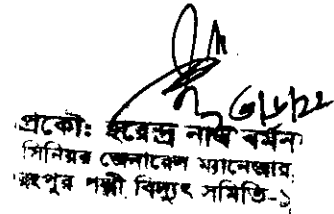 প্রকৌ: হরেন্দ্র নাথ বর্মন
সিনিয়র জেনারেল ম্যানেজার
রংপুর পল্লী বিদ্যুৎ সমিতি-১